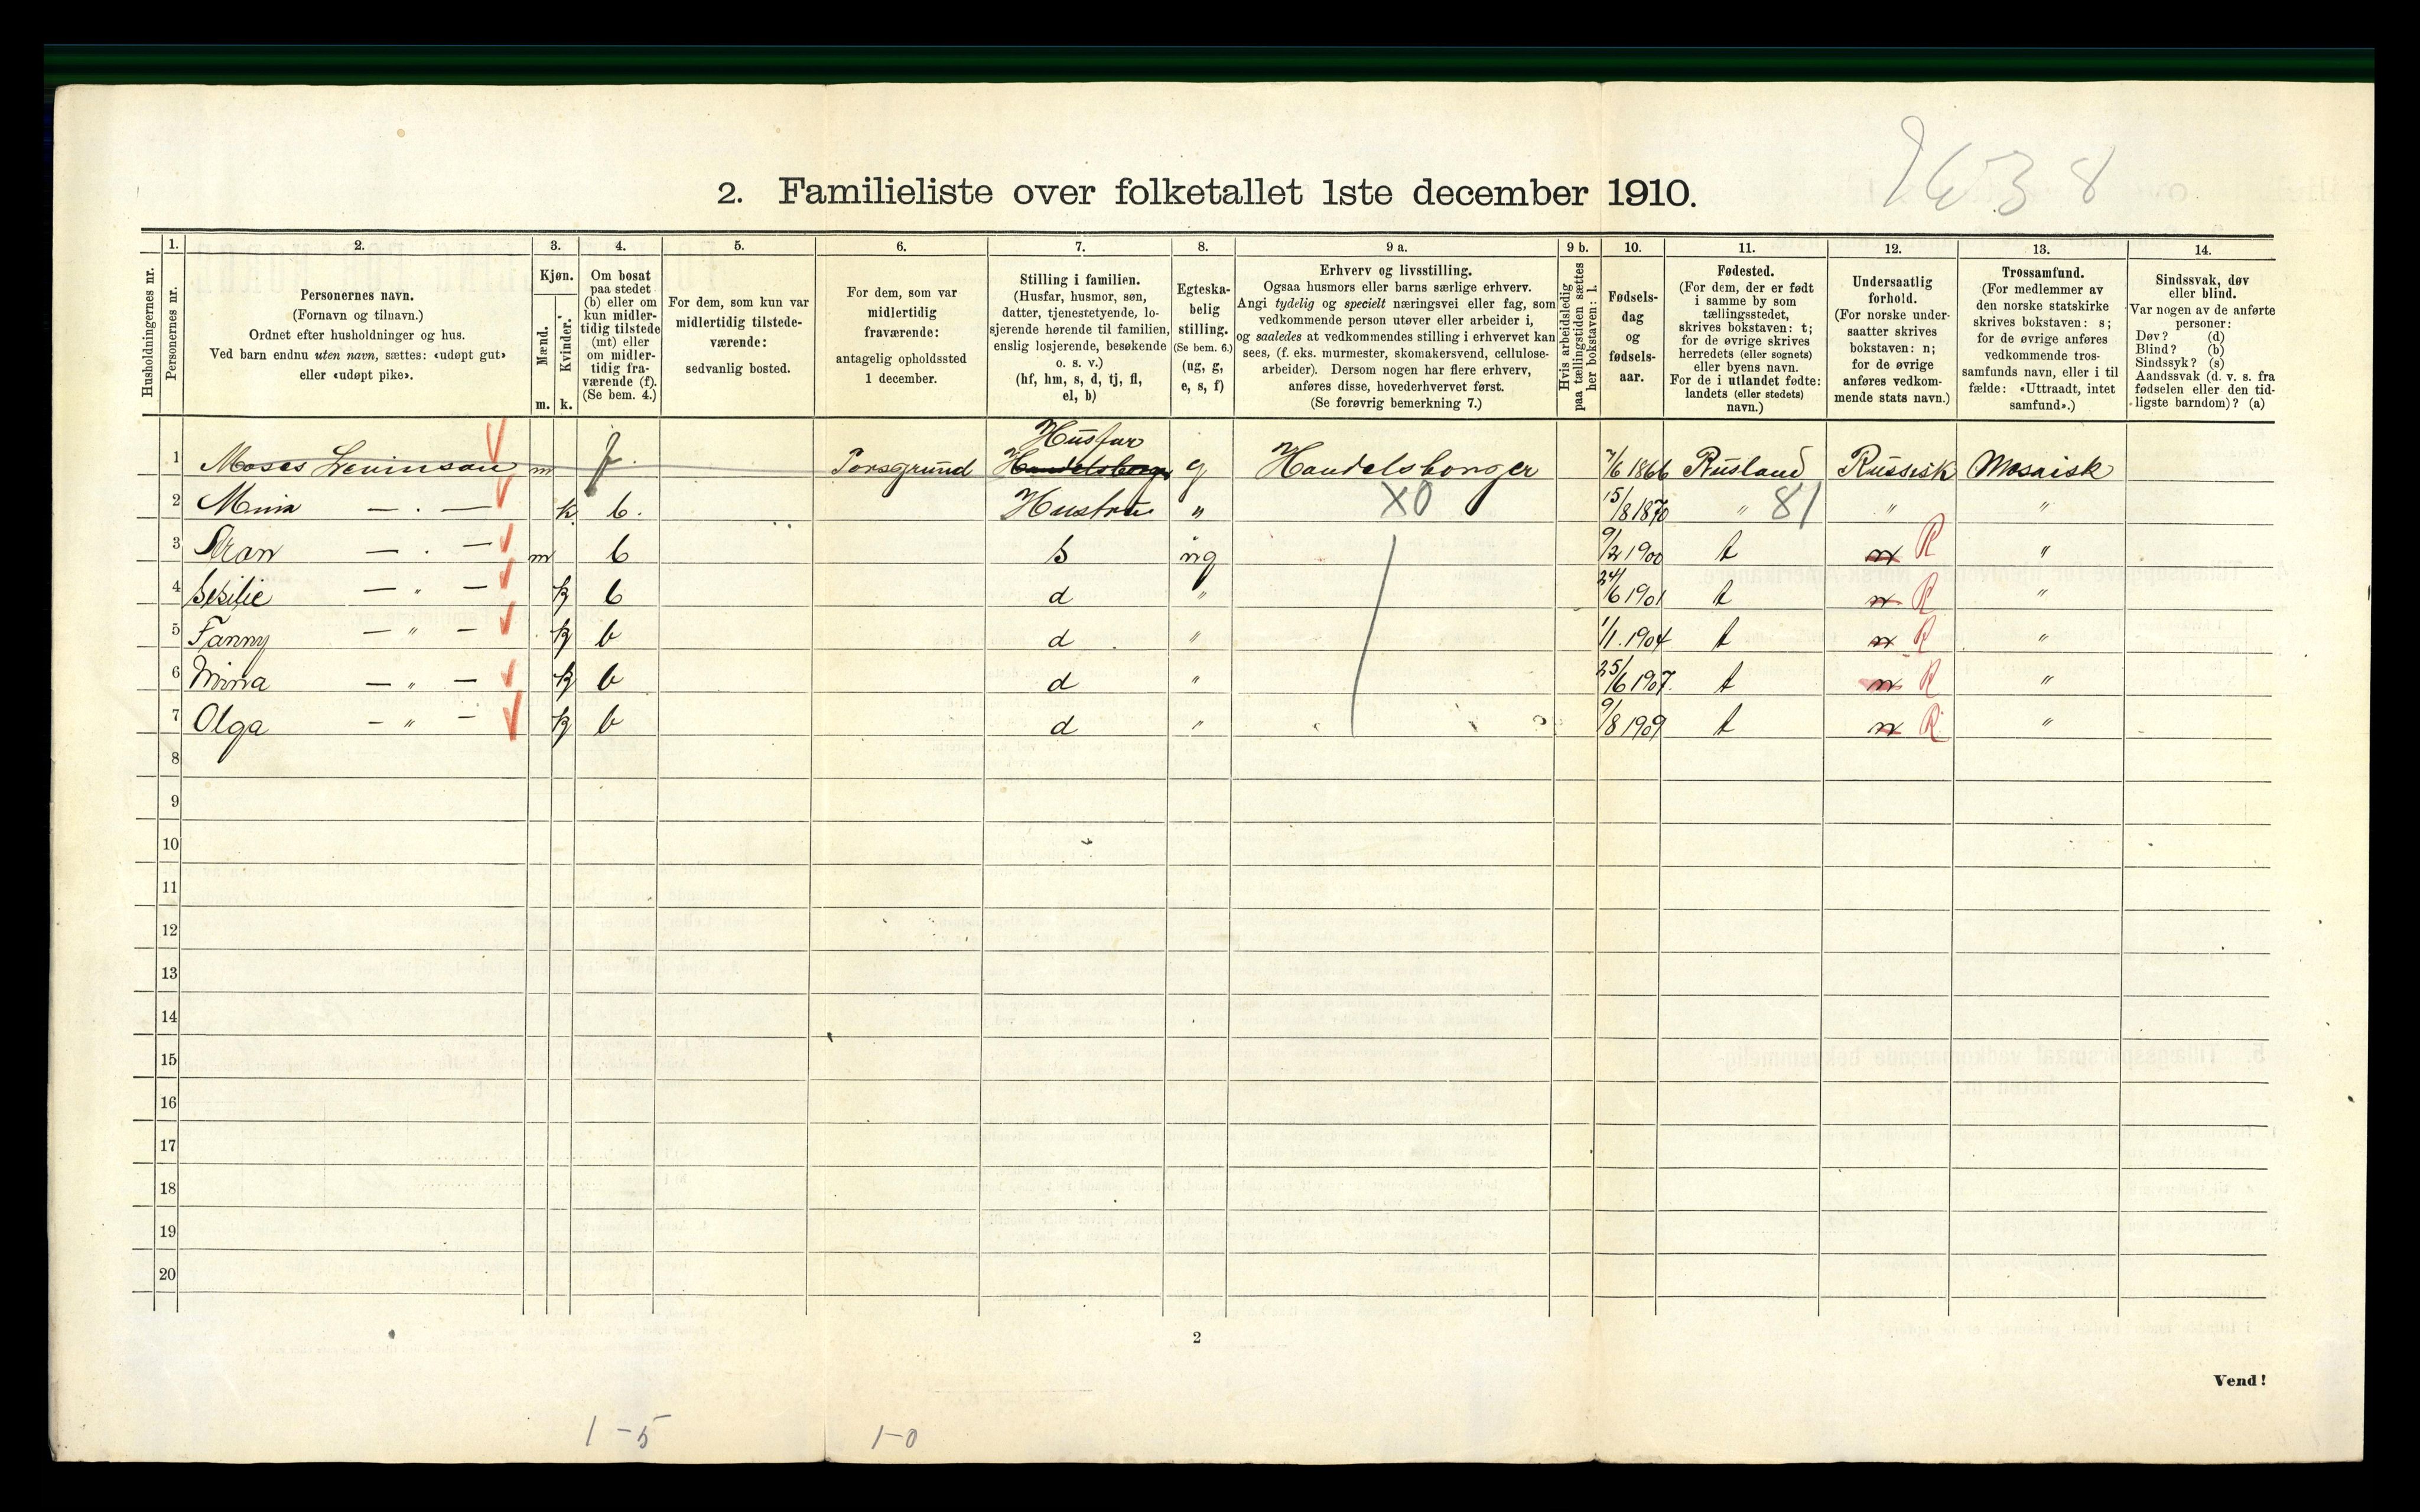 2638
2. Familieliste over folketallet 1ste december 1910.
1. 2. 3. 4. 5. 6. 7. 8. 9 a. 9 b. 10. 11. 12. 13. 14.
Husholdningernes nr.
Personernes nr.
Personernes navn.
(Fornavn og tilnavn.)
Ordnet efter husholdninger og hus.
Ved barn endnu uten navn, sættes: «udøpt gut»
eller «udøpt pike».
Kjøn.
Mænd.
Kvinder.
m. k.
Om bosat
paa stedet
(b) eller om
kun midler-
tidig tilstede
(mt) eller
om midler-
tidig fra-
værende (f).
(Se bem. 4.)
For dem, som kun var
midlertidig tilstede-
værende:
sedvanlig bosted.
For dem, som var
midlertidig
fraværende:
antagelig opholdssted
1 december.
Stilling i familien.
(Husfar, husmor, søn,
datter, tjenestetyende, lo-
sjerende hørende til familien,
enslig losjerende, besøkende
o. s. v.)
(hf, hm, s, d, tj, fl,
el, b)
Egteska-
belig
stilling.
(Se bem. 6.)
(ug, g,
e, s, f)
Erhverv og livsstilling.
Ogsaa husmors eller barns særlige erhverv.
Angi tydelig og specielt næringsvei eller fag, som
vedkommende person utøver eller arbeider i,
og saaledes at vedkommendes stilling i erhvervet kan
sees, (f. eks. murmester, skomakersvend, cellulose-
arbeider). Dersom nogen har flere erhverv,
anføres disse, hovederhvervet først.
(Se forøvrig bemerkning 7.)
Hvis arbeidsledig
paa tællingstiden sættes
her bokstaven: l.
Fødsels-
dag
og
fødsels-
aar.
Fødested.
(For dem, der er født
i samme by som
tællingsstedet,
skrives bokstaven: t;
for de øvrige skrives
herredets (eller sognets)
eller byens navn.
For de i utlandet fødte:
landets (eller stedets)
navn.)
Undersaatlig
forhold.
(For norske under-
saatter skrives
bokstaven: n;
for de øvrige
anføres vedkom-
mende stats navn.)
Trossamfund.
(For medlemmer av
den norske statskirke
skrives bokstaven: s;
for de øvrige anføres
vedkommende tros-
samfunds navn, eller i til
fælde: «Uttraadt, intet
samfund».)
Sindssvak, døv
eller blind.
Var nogen av de anførte
personer:
Døv? (d)
Blind? (b)
Sindssyk? (s)
Aandssvak (d. v. s. fra
fødselen eller den tid-
ligste barndom)? (a)
Husfar
1 Moses Levinson m f. Porsgrund Handelsborger g Handelsborger 7/6 1866 Rusland Russisk Mosaisk
2 — . — k b. Hustru " X0 15/8 1870 " 81 " "
3 — . — m b s ug 9/2 1900 t n R "
4 — " — k b d " 24/6 1901 t n R "
5 Fanny — " — k b d " 1/1 1904 t n R "
6 Mina — " — k b d " 25/6 1907. t n R "
7 Olga — " — k b d " 9/8 1909 t n R "
8
9
10
11
12
13
14
15
16
17
18
19
20
2
Vend!
1-5 1-0